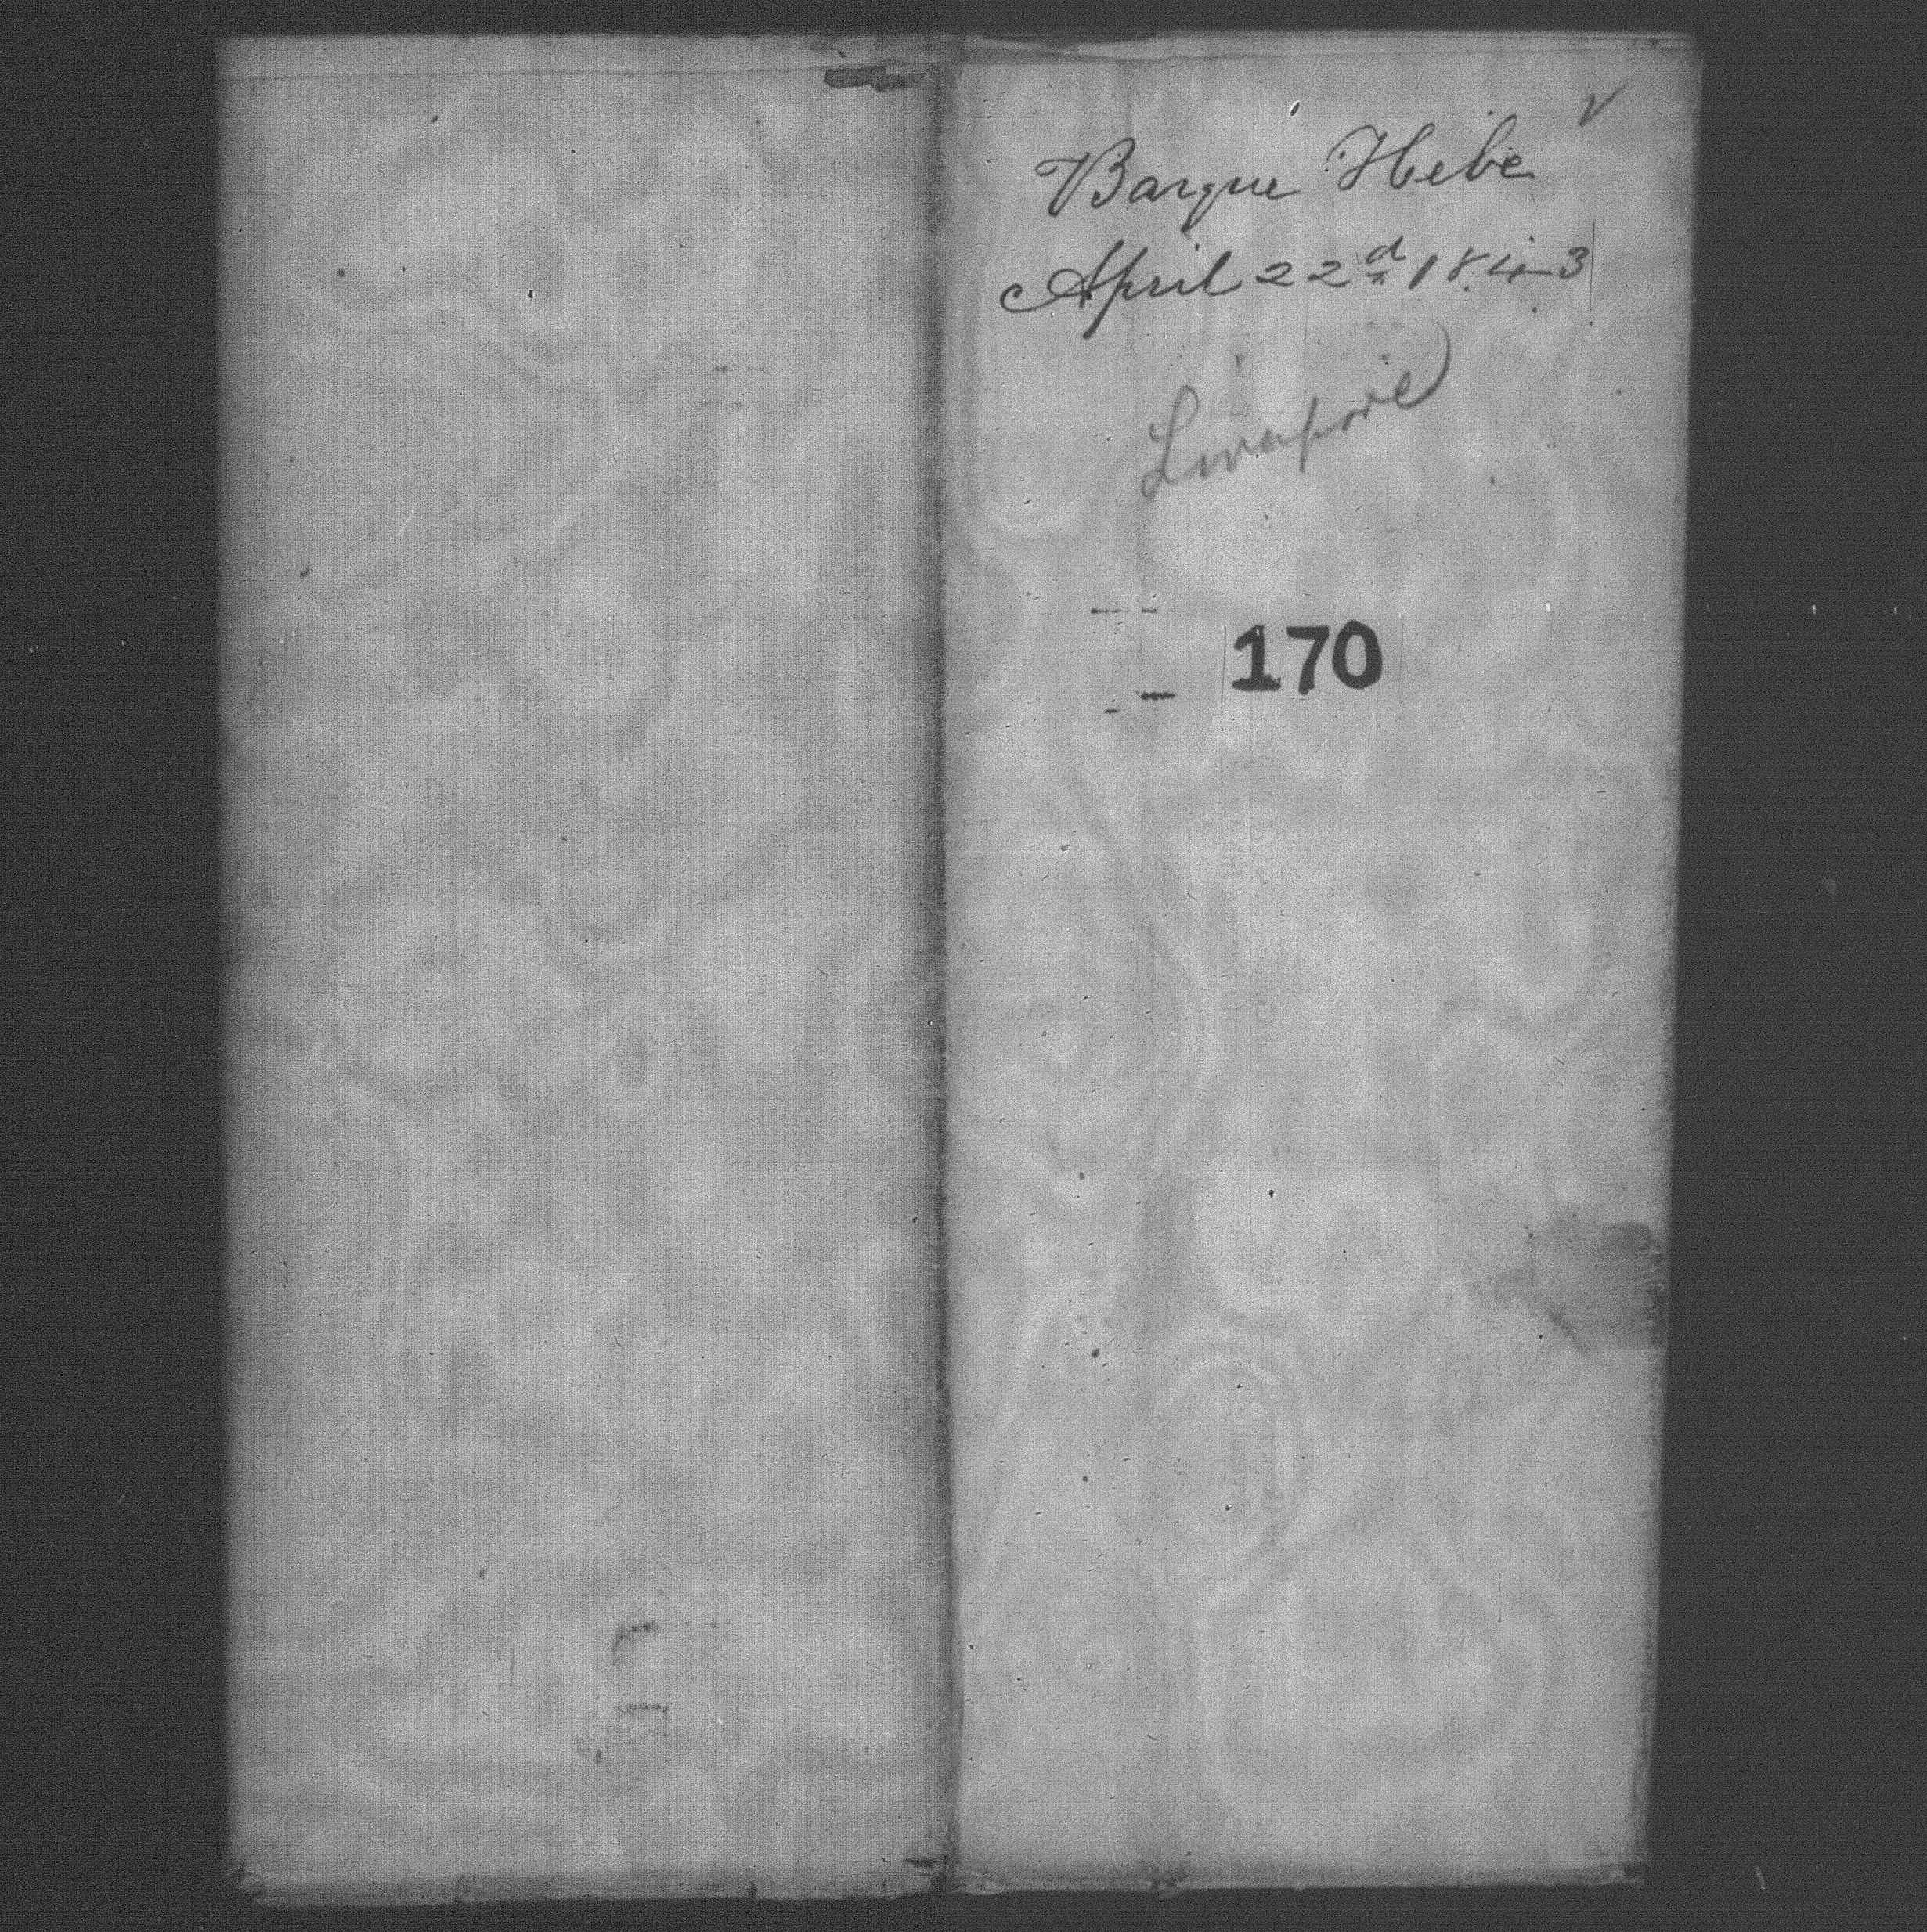 Barque Hebe
April 22d 1843
Liverpool
170